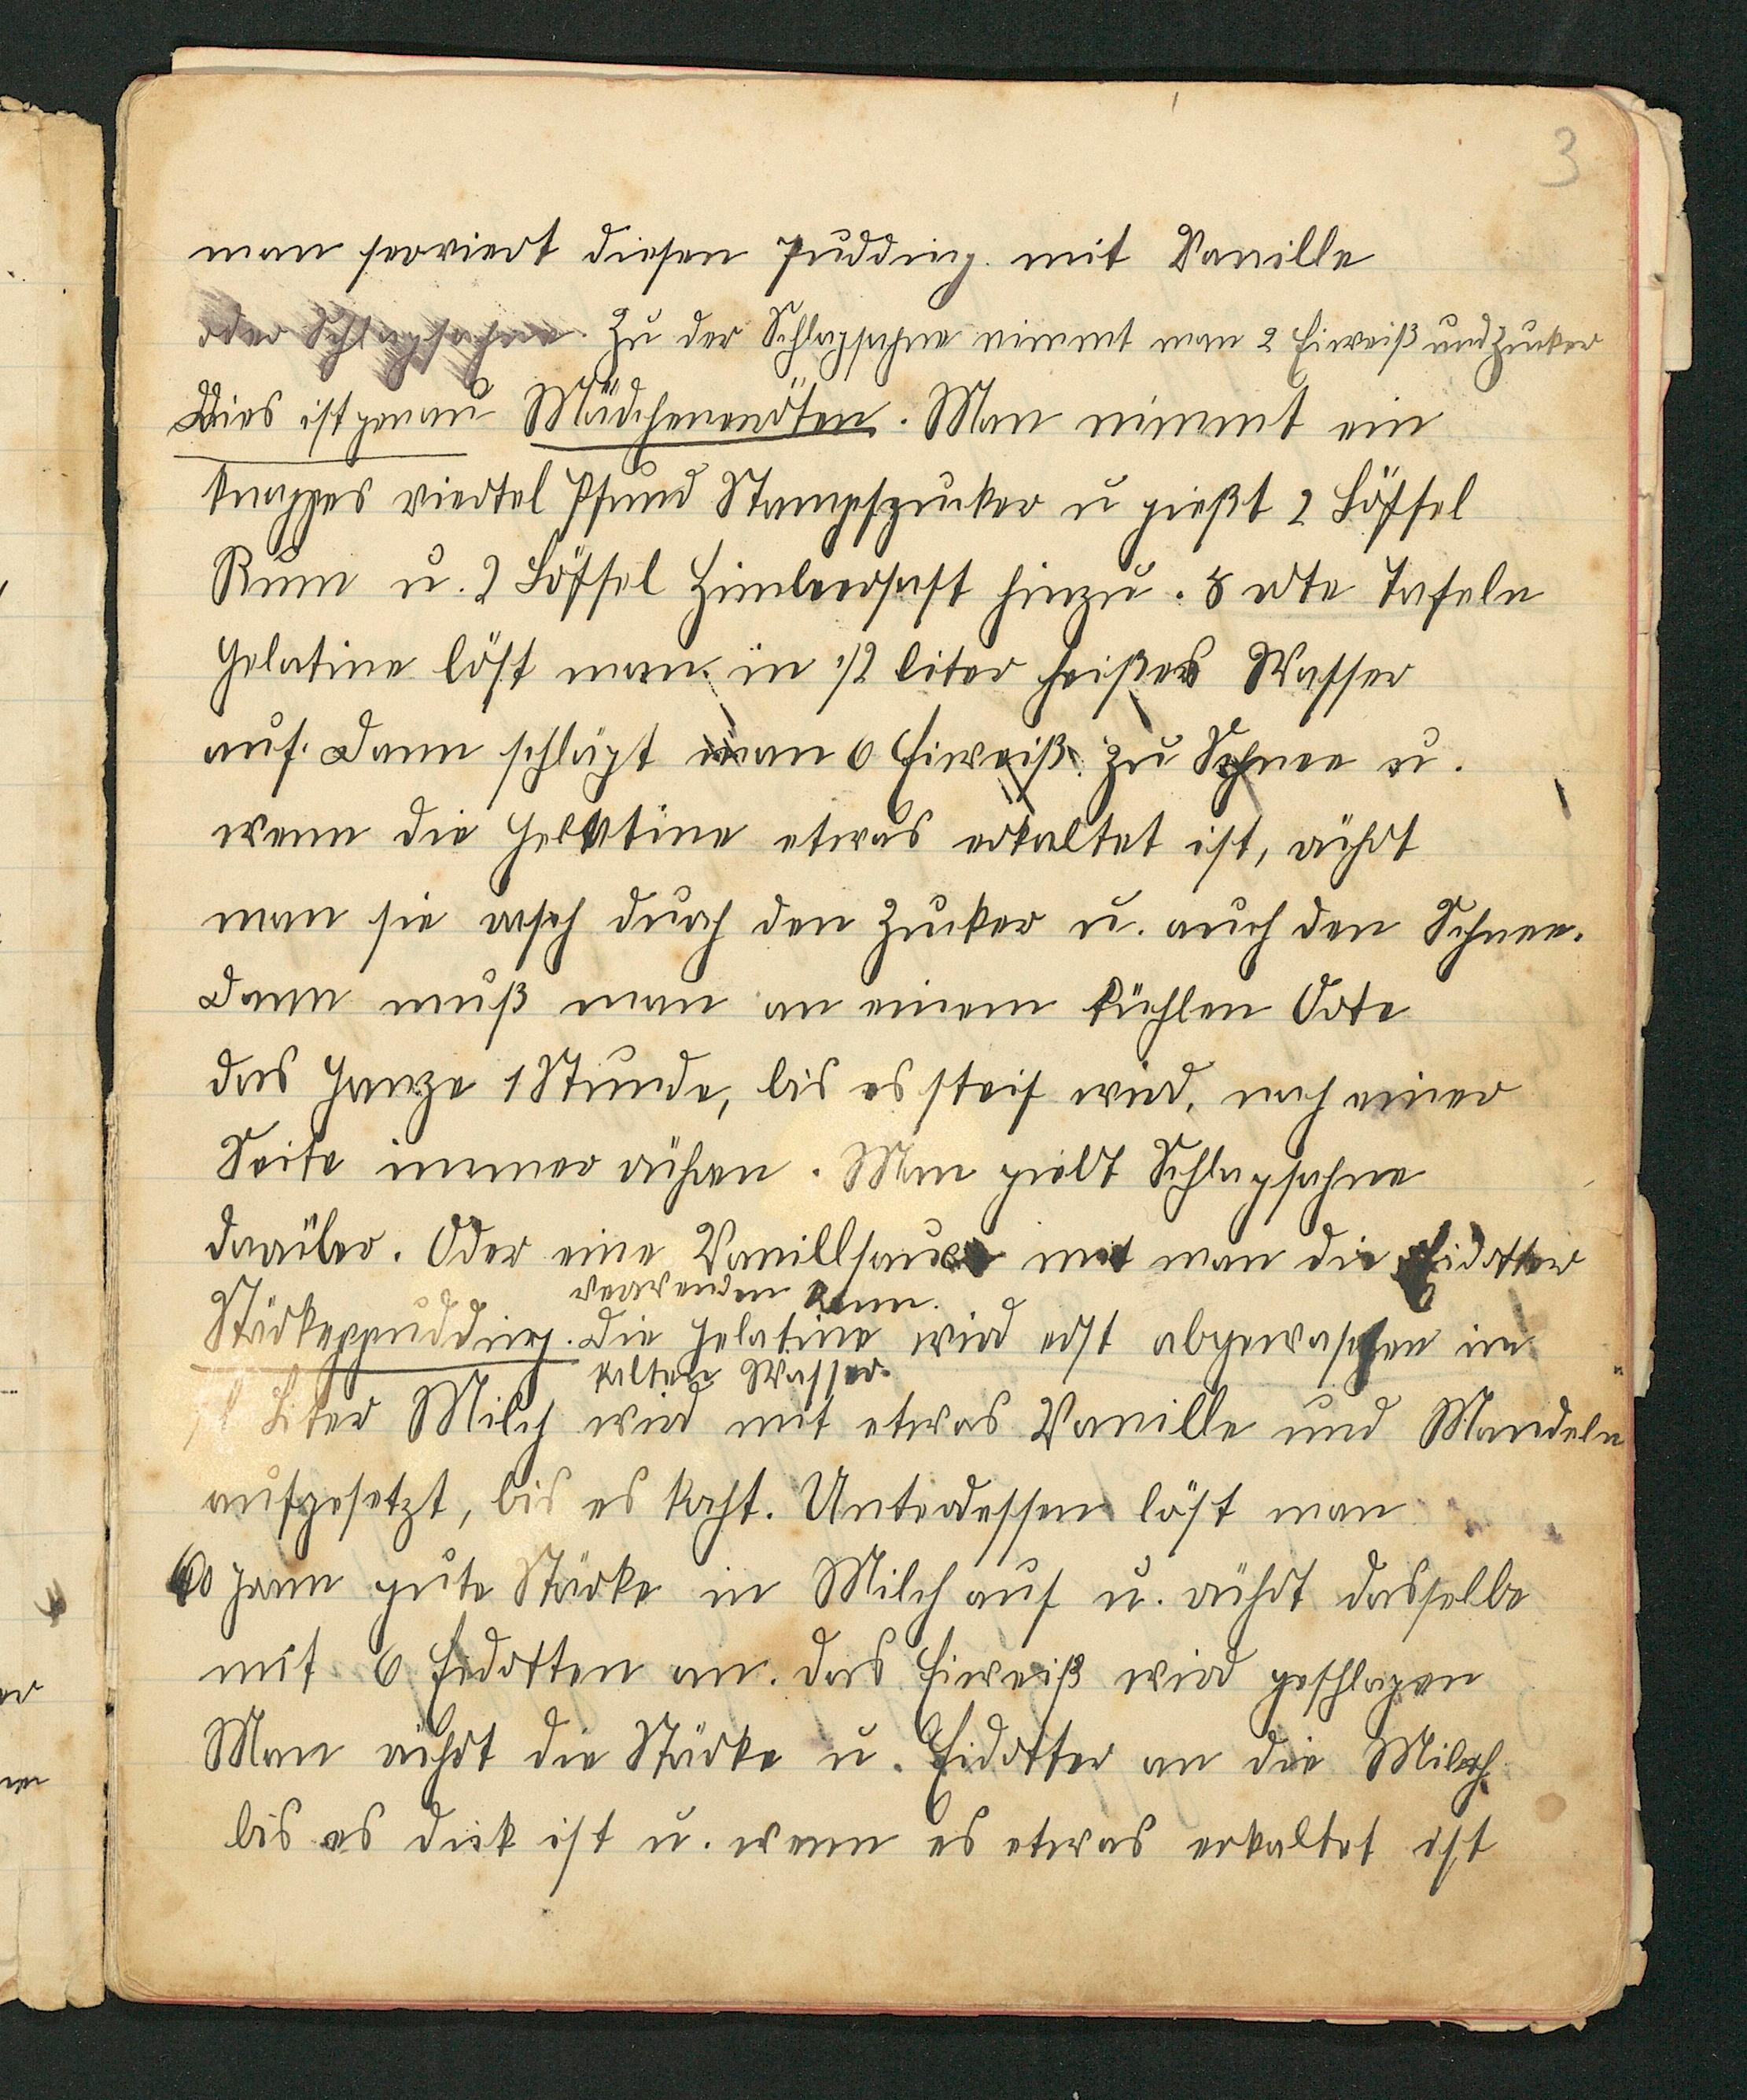 3
man serviert diesen Pudding mit Vanille
oder Schlagsahne. Zu der Schlagsahne nimmt man 2 Eiweiß und Zucker
Dies ist genau Mädchenerröten. Man nimmt ein
knappes viertel Pfund Stampfzucker u gießt 2 Löffel
Rum u. 2 Löffel Himbeersaft hinzu. 8 rote Tafeln
Gelatine löst man in 1/2 liter heißes Wasser
auf. Dann schlägt man 6 Eiweiß zu Schnee u.
wenn die Gelatine etwas erkaltet ist, rührt
man sie rasch durch den Zucker u. auch den Schnee.
Dann muß man an einem kühlen Orte
das Ganze 1 Stunde, bis es steif wird, nach einer
Seite immer rühren. Man giebt Schlagsahne
darüber. Oder eine Vanillsauce mit man die Eidotter
verwenden kann.
Stärkepudding. Die Gelatine wird erst abgewaschen im
kalten Wasser.
1 Liter Milch wird mit etwas Vanille und Mandeln
aufgesetzt, bis es kocht. Unterdessen löst man
60 gram gute Stärke in Milch auf u. rührt dasselbe
mit 6 Eidotten an. das Eiweiß wird geschlagen
Man rührt die Stärke u. Eidotter an die Milch
bis es dick ist u. wenn es etwas erkaltet ist